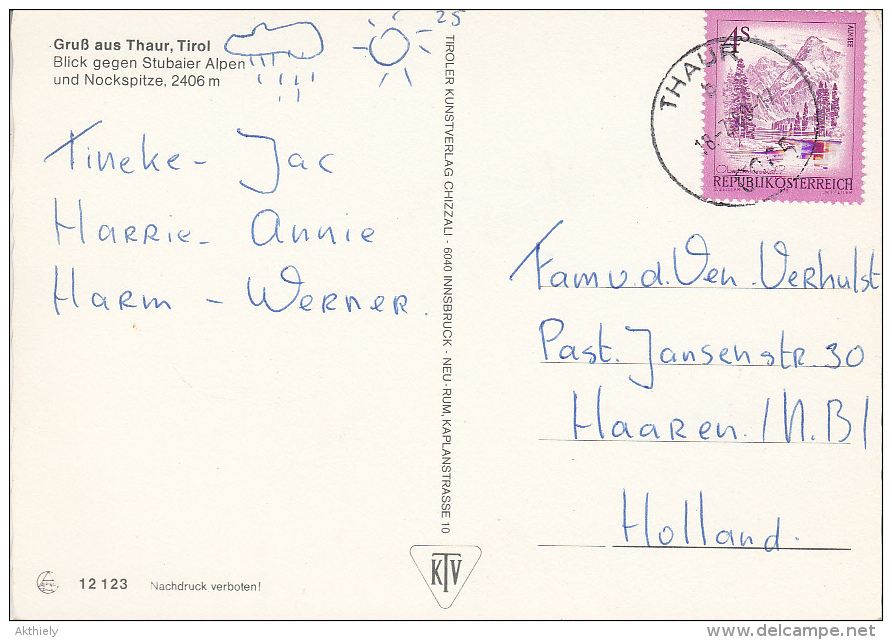 25
Gruß aus Thaur, Tirol
Blick gegen Stubaier Alpen
und Nockspitze, 2406 m
Tineke - Jac
Harrie - Annie
Harm - Werner.
TIROLER KUNSTVERLAG CHIZZALI · 6040 INNSBRUCK · NEU-RUM, KAPLANSTRASSE 10
KTV
4S
ALMSEE
REPUBLIK ÖSTERREICH
THAUR
6065
Fam v.d. Ven - Verhulst
Past. Jansenstr. 30
Haaren. (N.B)
Holland.
12 123 Nachdruck verboten!
Akthiely
delcampe.net